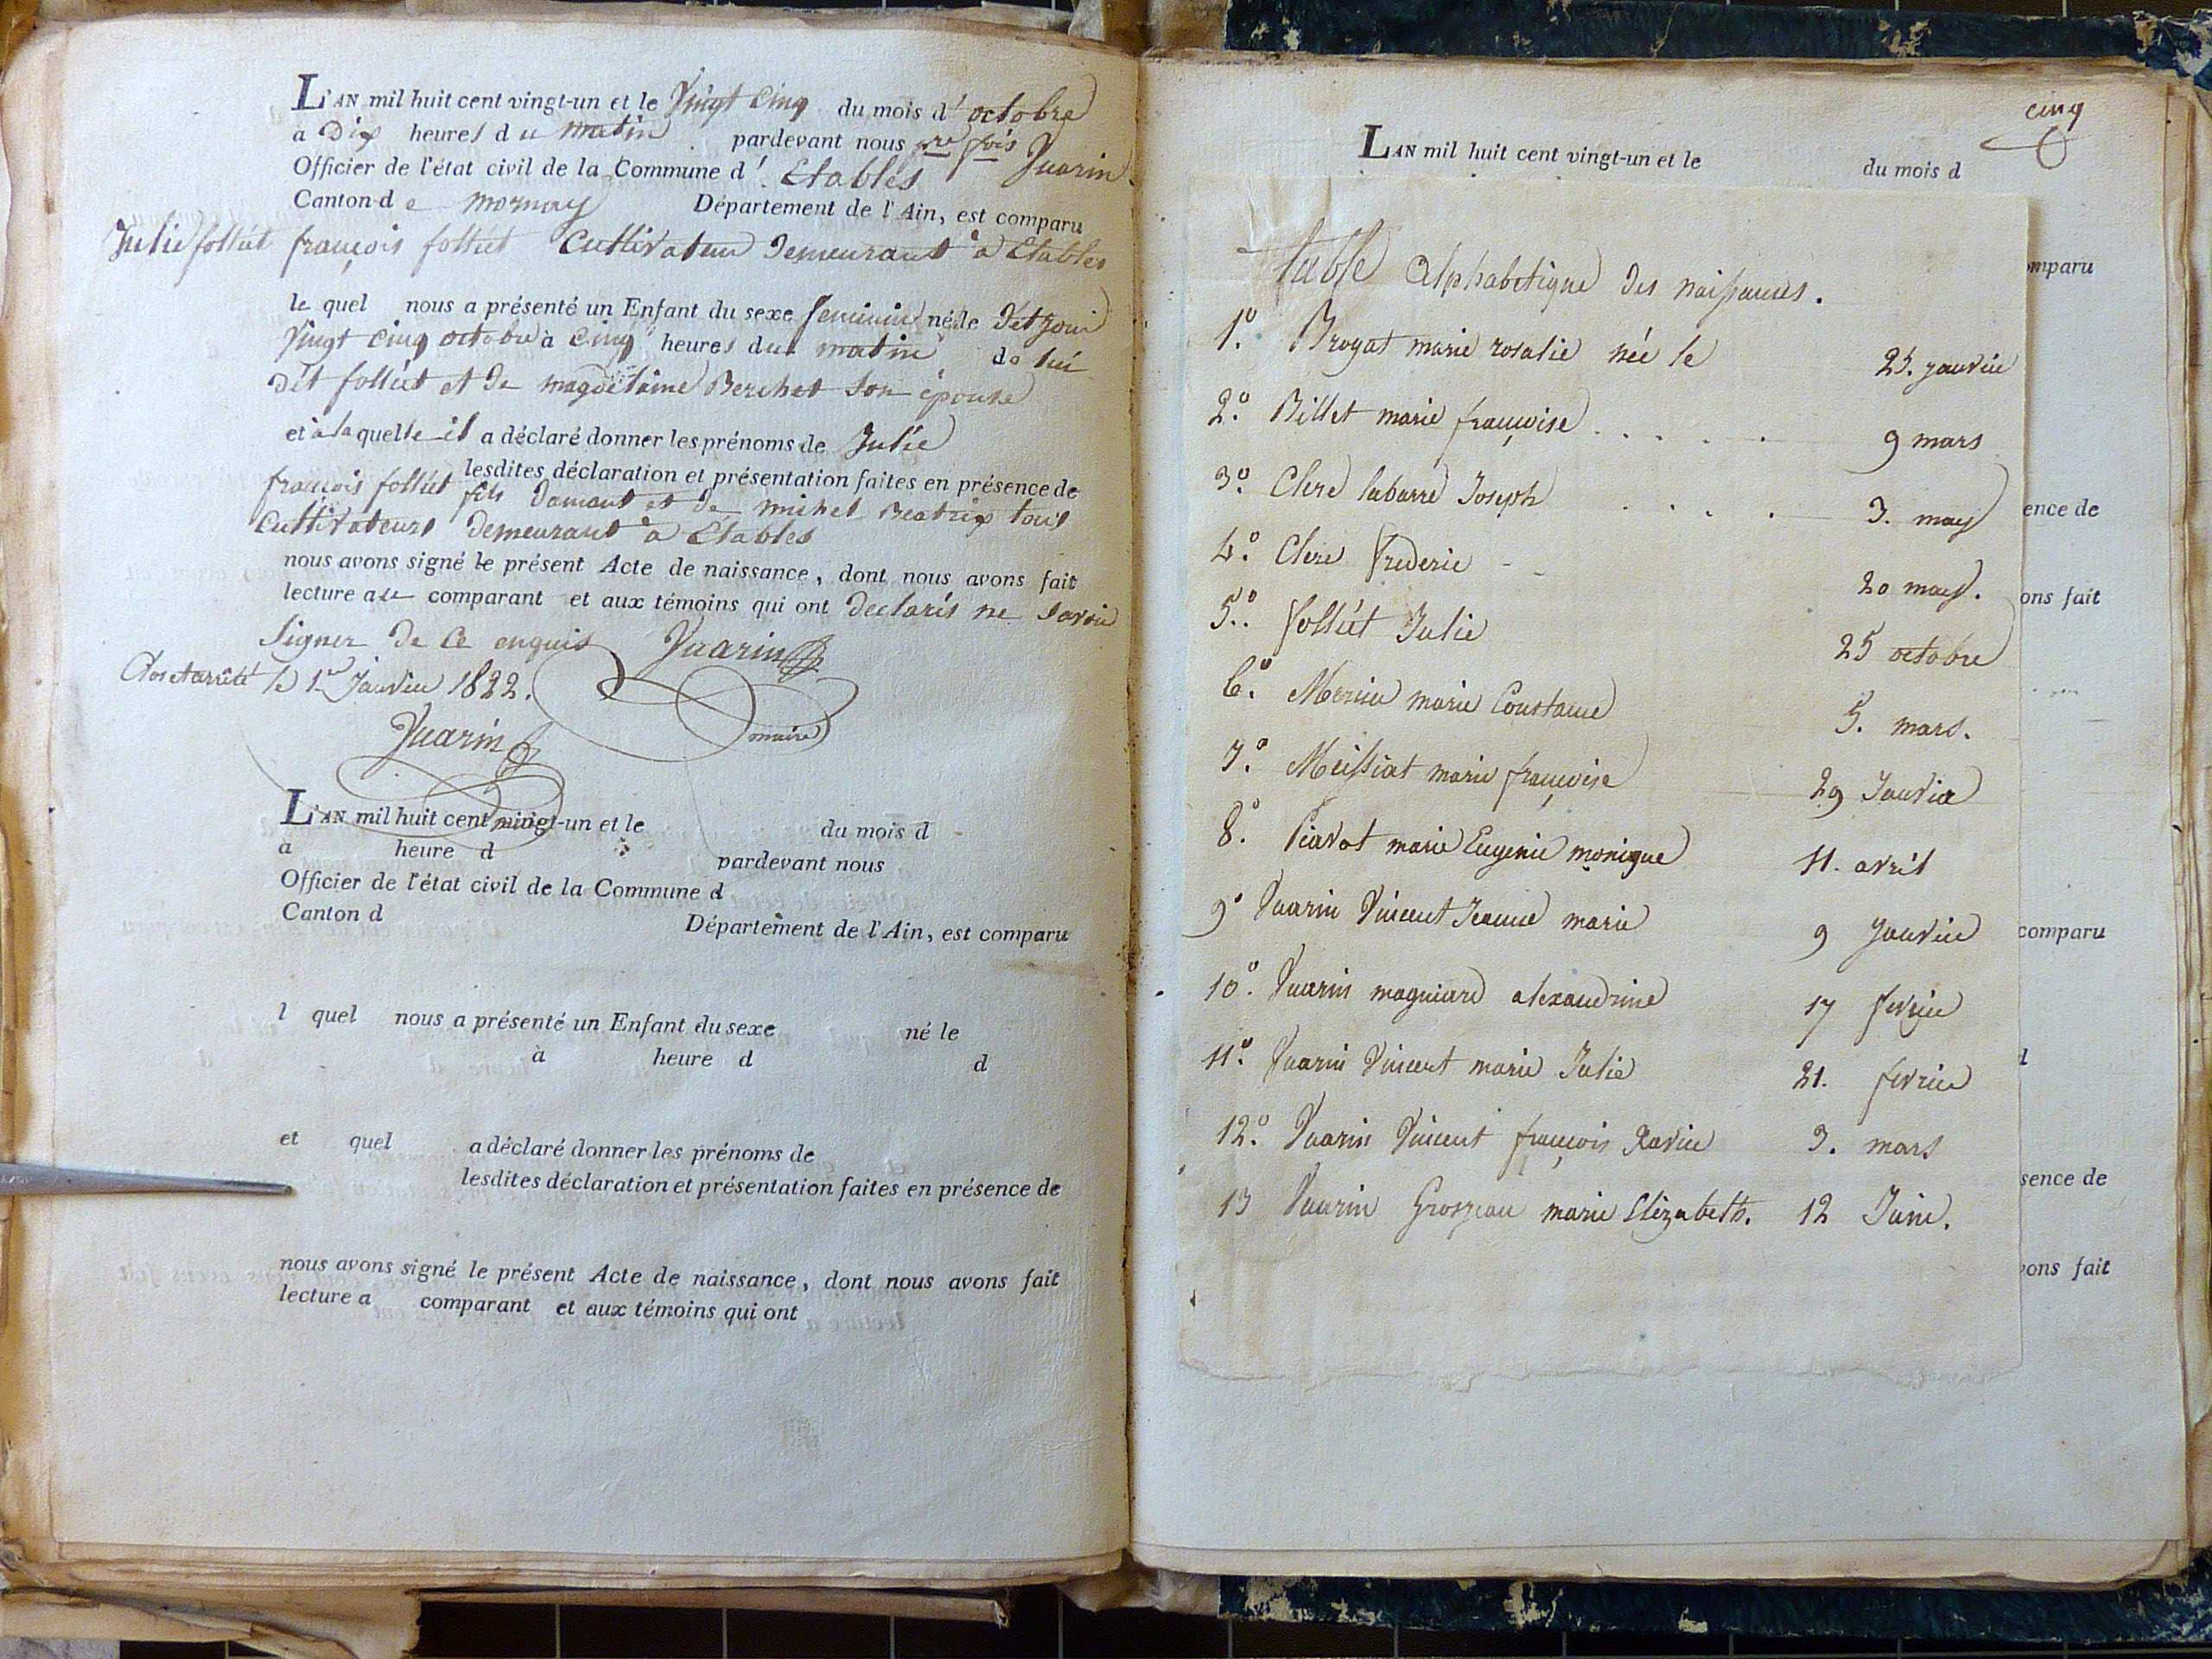 L'AN mil huit cent vingt-un et le Vingt Cinq du mois d'octobre
a Dix heures du matin pardevant nous pre fois Juarin
Officier de l'état civil de la Commune d'Etables
Canton de mornay Département de l'Ain, est comparu
Julie folliet françois folliet Cultivateur Demeurant à Etables
le quel nous a présenté un Enfant du sexe feminin né le
Vingt cinq octobre à Cinq heures du matin de lui
Dit folliet et De magdelaine Berchet son épouse
et à la quelle il a déclaré donner les prénoms de Julie
lesdites déclaration et présentation faites en présence de
françois folliet fils Damant et De michel Beatrix tous
Cultivateurs Demeurant à Etables
nous avons signé le présent Acte de naissance, dont nous avons fait
lecture au comparant et aux témoins qui ont declarés ne savoir
signer De Ce enquis Juarin
maire
Clos et arrêté le 1er Janvier 1822.
Juarin
maire
L'AN mil huit cent vingt-un et le du mois d
à heure d pardevant nous
Officier de l'état civil de la Commune d
Canton d Département de l'Ain, est comparu
l quel nous a présenté un Enfant du sexe né le
à heure d d
et quel a déclaré donner les prénoms de
lesdites déclaration et présentation faites en présence de
nous avons signé le présent Acte de naissance, dont nous avons fait
lecture a comparant et aux témoins qui ont
cinq
L'AN mil huit cent vingt-un et le du mois d
Table alphabetique des naissances.
1.o Brogat marie rosalie née le 25. janvier
2.o Billet marie françoise . . . . . 9 mars
3.o Clerc labarre Joseph . . . . 3. may
4.o Clerc frederic - - 20 may.
5.o folliét Julie 25 octobre
6.o Mercier marie Constance 5. mars.
7.o Meissiat marie françoise 29 Janvier
8.o Piavot marie Eugenie monique 11. avril
9.o Juarin Vincent Jeanne marie 9 Janvier
10.o Juarin magniard alexandrine 17 fevrier
11.o Juarin Vincent marie Julie 21. fevrier
12.o Juarin Vincent françois Xavier 3. mars
13 Juarin Grosjean marie Elizabeth. 12 Juin.
omparu
ence de
ons fait
comparu
d
sence de
vons fait